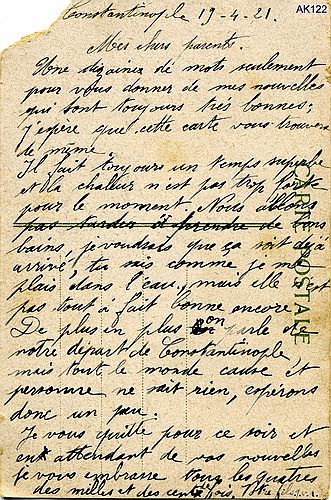 AK122
Constantinople 19-4-21.
Mes chers parents.
Une dizaine de mots seulement
pour vous donner de mes nouvelles
qui sont toujours très bonnes;
j'espère que cette carte vous trouvera
de même.
Il fait toujours un temps superbe
et la chaleur n'est pas trop forte
pour le moment. Nous allons
pas tarder à prendre de bons
bains, je voudrais que ça soit déjà
arrivé, tu sais comme je me
plais dans l'eau, mais elle n'est
pas tout à fait bonne encore.
De plus en plus on parle de
notre départ de Constantinople
mais tout le monde cause et
personne ne sait rien, espérons
donc un peu.
Je vous quitte pour ce soir et
en attendant de vos nouvelles
je vous embrasse tous les quatres
des milles et des cents fois. Votre fils
CARTE POSTALE